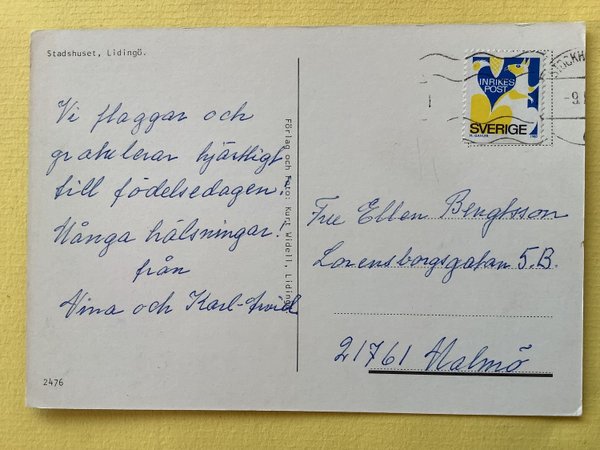 Stadshuset, Lidingö.
Vi flaggar och
gratulerar hjärtligt
till födelsedagen!
Många hälsningar!
från
Nina och Karl-Arvid
2476
Förlag och Foto: Kurt Widell, Lidingö
INRIKES
POST
SVERIGE
STOCKH
-9.
Fru Ellen Bengtsson
Lorensborgsgatan 5.B.
21761 Malmö